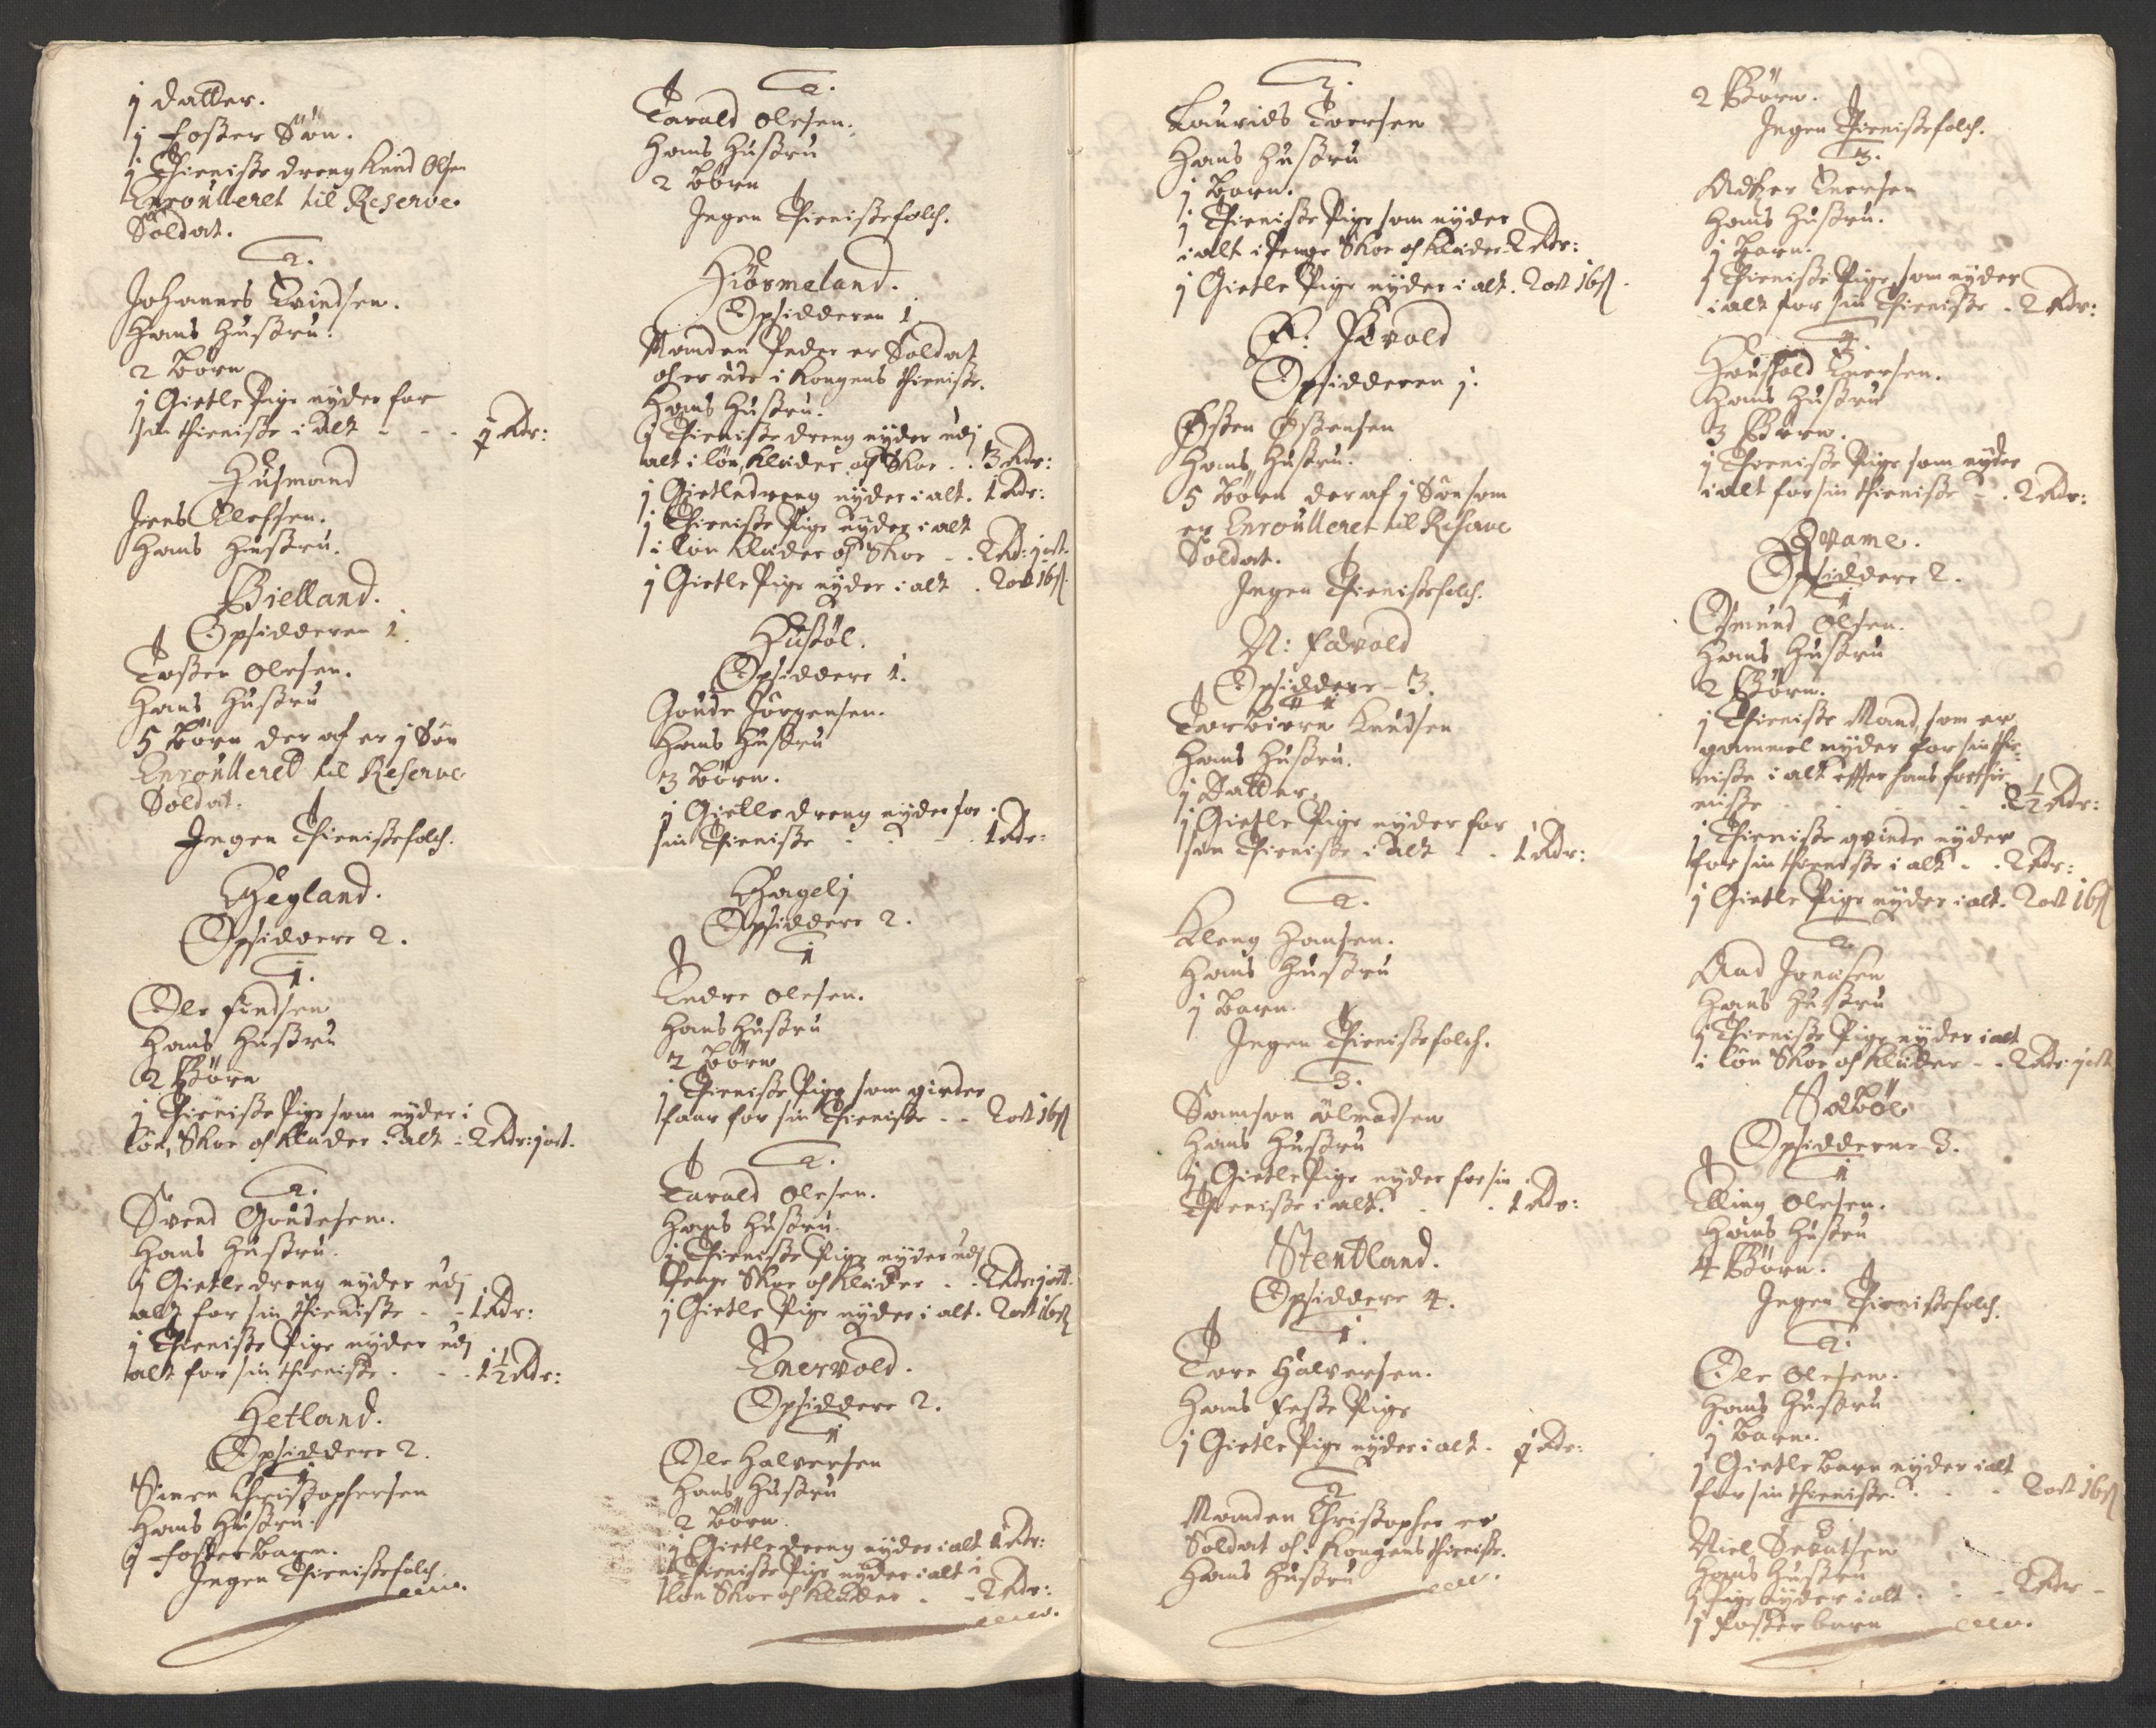 j datter.
j foster Søn.
j Thieniste dreng Knud Olsen
Enroulleret til Reserve
Soldat.
2.
Johannes Tvindsen.
Hans Hustru.
2 Børn
j Gietle Pige nyder for
sin thieniste i alt - - - 1 Rdr:
Husmand
Jens Elefsen.
Hans Hustru.
Bielland.
Opsidderen 1.
Tosten Olesen.
Hans Hustru
5 Børn der af er j Søn
Enroulleret til Reserve
Soldat.
Ingen Thienistefolch.
Hegland.
Opsiddere 2.
1.
Ole findsen
Hans Hustru
2 Børn
j Thieniste Pige som nyder i
løn, Skoe och Kleder i alt - 2 Rdr: j ort.
2.
Svend Goudesen.
Hans Hustru.
j Gietledreng nyder udj
alt for sin thieniste - - 1 Rdr:
j Thieniste Pige nyder udj
alt for sin thieniste - - 1½ Rdr:
Hetland.
Opsiddere 2.
1
Simen Christophersen
Hans Hustru.
j foster barn.
Ingen Thienistefolch
2.
Tarald Olesen.
Hans Hustru
2 børn
Ingen Thienistefolch.
Hiørmeland.
Opsidderen 1
Manden Peder er Soldat
och er ude i Kongens thieniste.
Hans Hustru.
j Thieniste dreng nyder udj
alt i løn, Kleder och Skoe - . 3 Rdr:
j Gietledreng nyder i alt. 1 Rdr:
j Thieniste Pige nyder i alt
i løn Kleder och Skoe - . 2 Rd: j ort.
j Gietle Pige nyder i alt . 2 ort 16 s
Husøl.
Opsiddere 1.
Goude Jørgensen.
Hans Hustru
3 børn.
j Gietledreng nyder for
sin Thieniste - - - 1 Rdr:
Hagelj
Opsiddere 2.
1
Endre Olesen.
Hans Hustru
2 børn
j Thieniste Pige som
faar for sin Thieniste - - 2 ort 16 s
2.
Tarald Olesen.
Hans Hustru.
j Thieniste Pige nyder udj
Penge Skoe och Kleder - - 2 Rdr: j ort.
j Gietle Pige nyder i alt. 2 ort 16 s
Enervold.
Opsiddere 2.
1
Ole Halversen
Hans Hustru
2 børn.
j Gietledreng nyder i alt 1 Rdr:
j Thieniste Pige nyder i alt i
løn Skoe och Kleder - - 2 Rdr:
2.
Laurids Toersen
Hans Hustru
j Barn.
j Thieniste Pige som nyder
i alt i Penge Skoe och Kleder 2 Rdr:
j Gietle Pige nyder i alt. 2 ort 16 s.
Ø: Fævold
Opsidderen j.
Østen Østensen
Hans Hustru.
5 Børn der af j Søn som
er Enroulleret til Reserve
Soldat.
Ingen Thienistefolch.
N: Fævold
Opsiddere 3.
1
Torbiørn Knudsen
Hans Hustru.
j Datter.
j Gietle Pige nyder for
sin Thieniste i alt - - 1 Rdr:
2.
Kleng Hansen.
Hans Hustru
j barn.
Ingen Thienistefolch.
3.
Samson
Hans Hustru
j Gietle Pige nyder for sin
Thieniste i alt. - . 1 Rdr:
Stendland.
Opsiddere 4.
1.
Tore Halversen.
Hans feste Pige
j Gietle Pige nyder i alt - 1 Rdr:
2
Manden Christopher er
Soldat och i Kongens thieniste.
Hans Hustru
2 Børn.
Ingen Thienistefolch.
3.
Adtzer Eversen
Hans Hustru.
j Barn.
j Thieniste Pige, som nyder
i alt for sin Thieniste - 2 Rdr:
4.
Houskold Eversen.
Hans Hustru
3 Børn.
j Thieniste Pige som nyder
i alt for sin thieniste - . 2 Rdr:
Qvame.
Opsiddere 2.
1
Osmund Olsen.
Hans Hustru
2 Børn.
j Thieniste Mand, som er
gammel nyder for sin thie-
niste i alt effter hans forthie-
niste - - - - 2½ Rdr:
j Thieniste qvinde nyder
for sin thieniste i alt - . 2 Rdr:
j Gietle Pige nyder i alt. 2 ort 16 s
2
Aad Jonesen
Hans Hustru
j Thieniste Pige nyder i alt
i løn Skoe och Kleder - . 2 Rdr: j ort
Sæbøe
Opsidderne 3.
1
Elling Olesen.
Hans Hustru
4 Børn.
Ingen Thienistefolch.
2.
Ole Olesen.
Hans Hustru
j Barn.
j Gietle barn nyder i alt
for sin thieniste. - - 2 ort 16 s
3
Niel
Hans Hustru
j Pige nyder i alt . - - 2 Rdr -
j foster barn